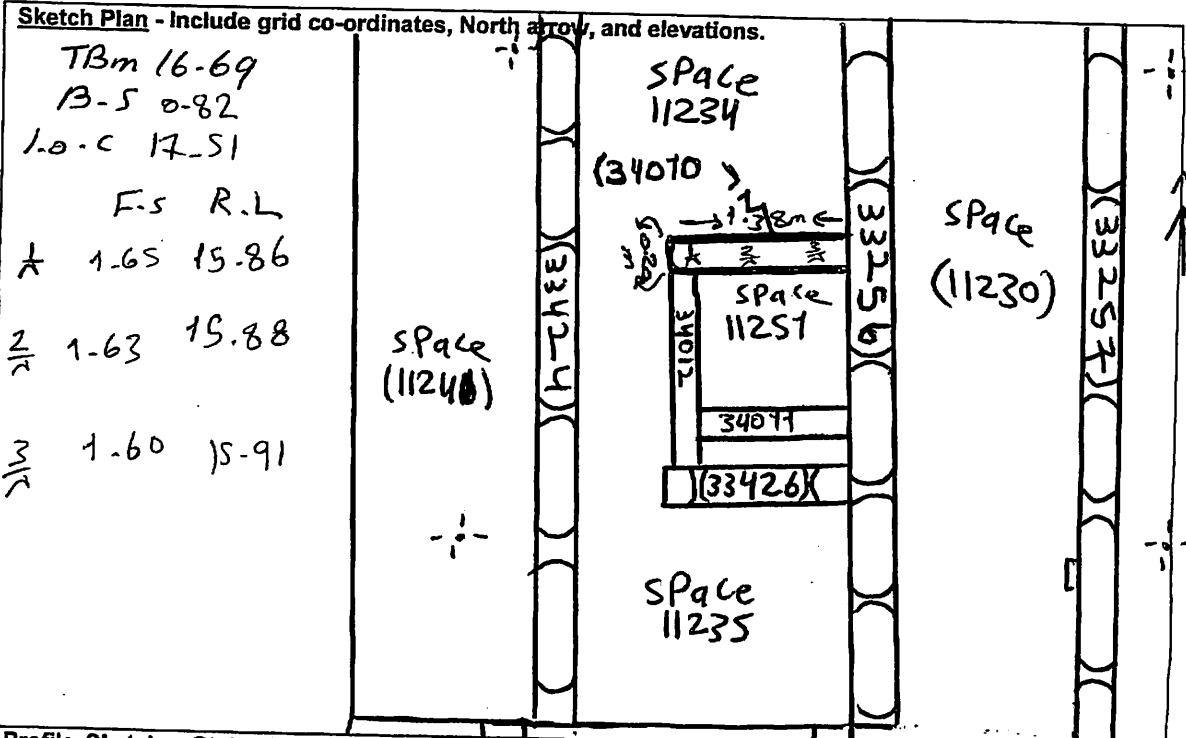 Sketch Plan - Include grid co-ordinates, North arrow, and elevations.
TBm 16-69
B-S 0-82
I.o.C 17-51
F.S R.L
1 1-65 15-86
2 1-63 15.88
3 1-60 15-91
SPace
(11241)
(33424)
SPace
11234
(34010
1.38m
1
2
3
SPace
11251
34012
34011
(33426)
SPace
11235
(33256)
SPace
(11230)
(33257)